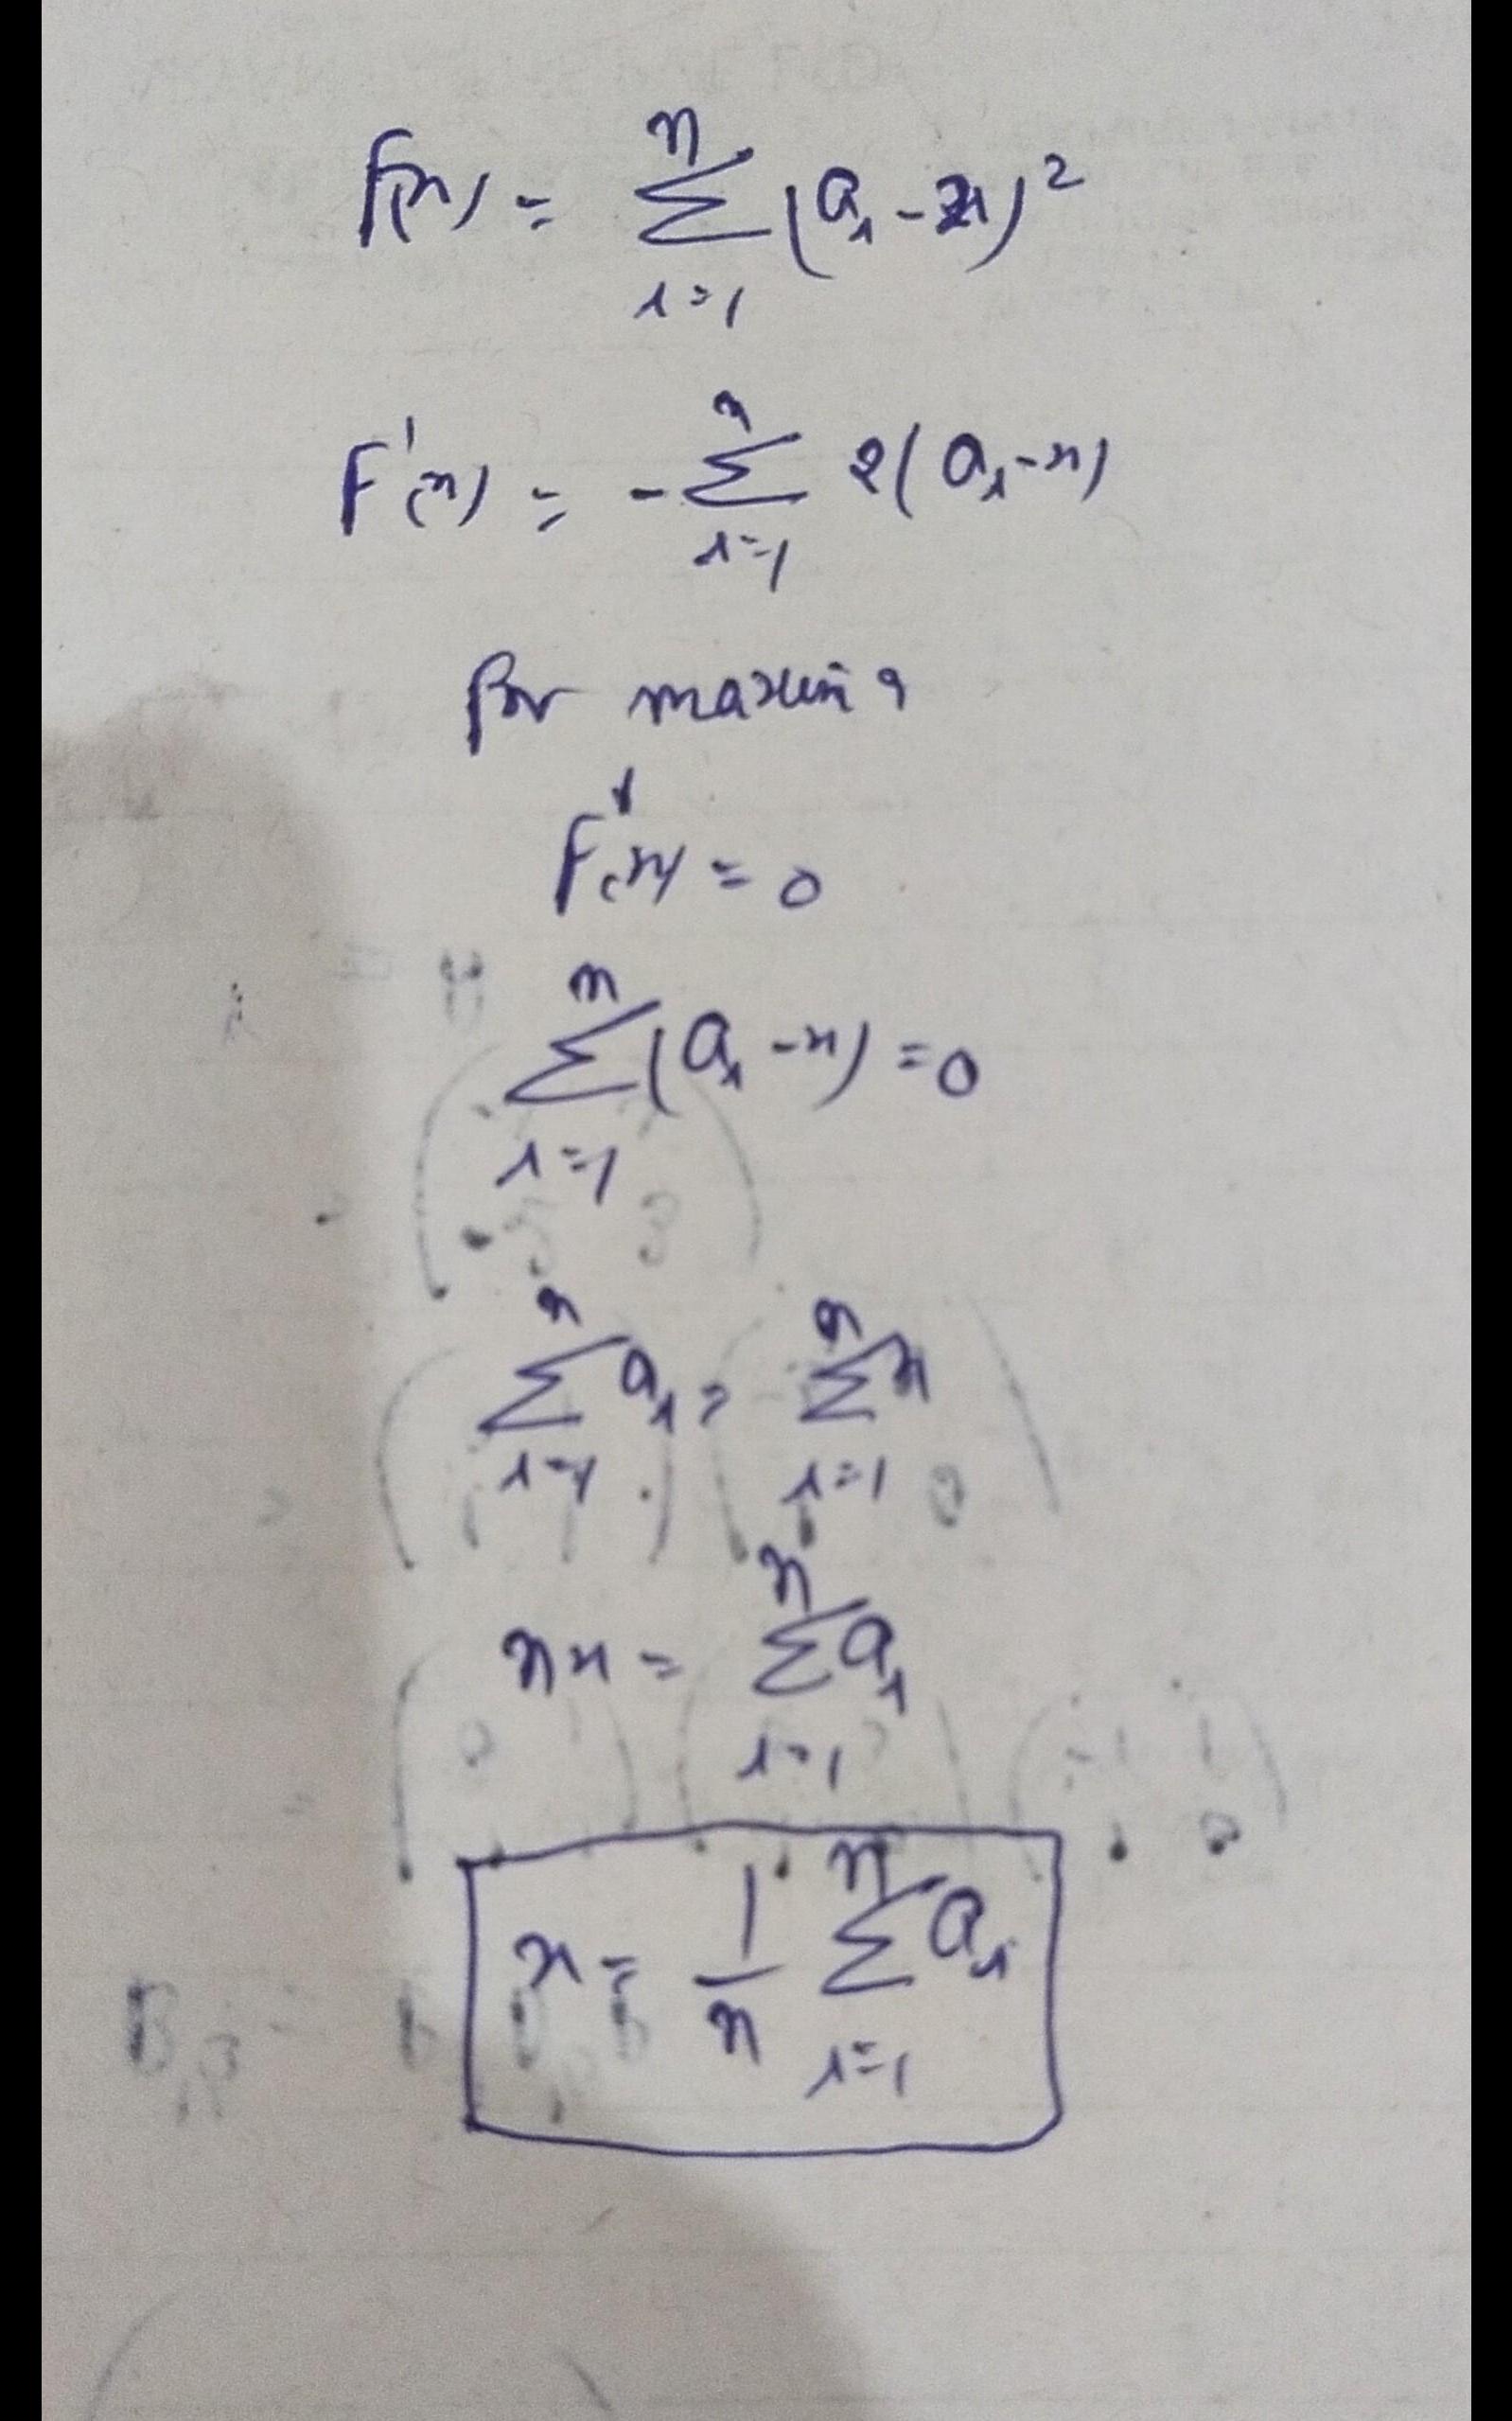 f(x) = \sum_{i=1}^{n} (a_i - x)^2
F'(x) = -\sum_{i=1}^{n} 2(a_i - x)
for maxima
F'(x) = 0
\sum_{i=1}^{n} (a_i - x) = 0
\sum_{i=1}^{n} a_i = \sum_{i=1}^{n} x
nx = \sum_{i=1}^{n} a_i
x = \frac{1}{n} \sum_{i=1}^{n} a_i